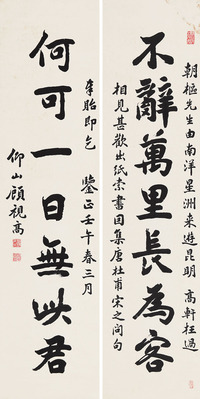 朝樞先生由南洋星洲来遊昆明 高軒枉過
不辭萬里長為客
相見甚歡出紙索書因集唐杜甫宋之问句
奉貽即乞 鑒正壬午春三月
何可一日無此君
仰山顧視高